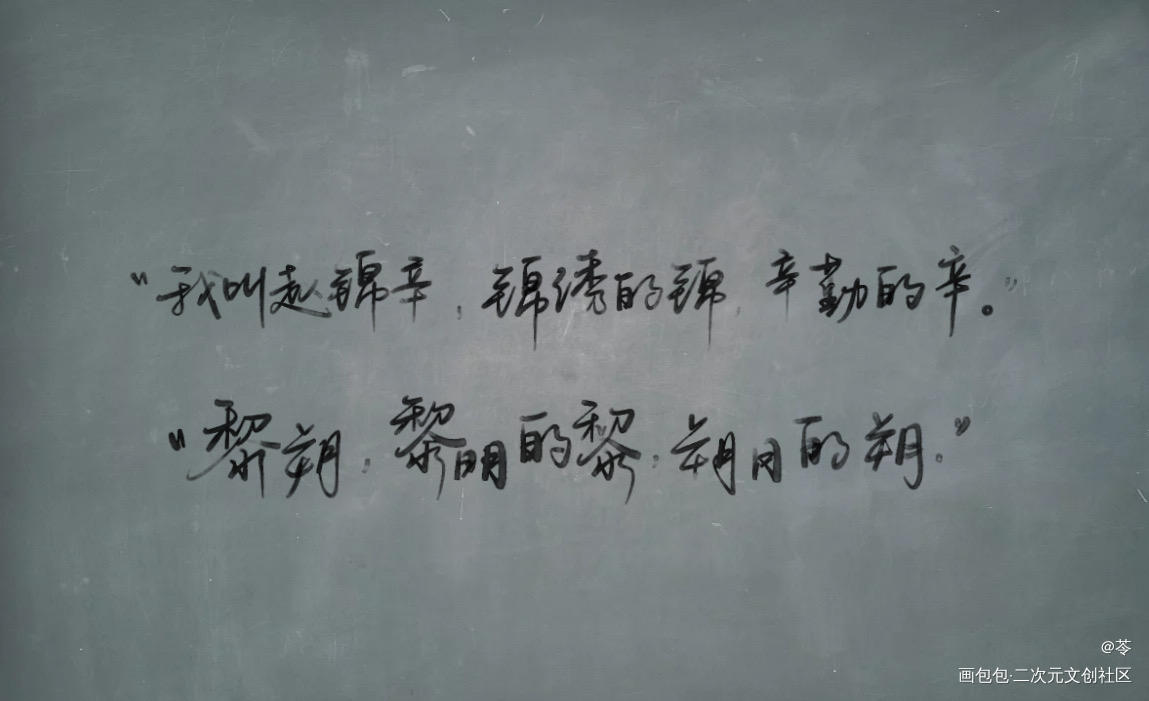 “我叫赵锦辛，锦绣的锦，辛勤的辛。”
“黎朔，黎明的黎，朔月的朔。”
@苓
画包包·二次元文创社区